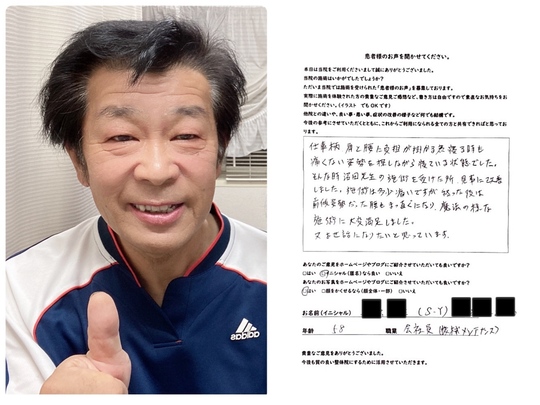 adidas
患者様のお声を聞かせてください。
本日は当院をご利用くださいまして誠にありがとうございました。
当院の施術はいかがでしたでしょうか。
ただいま当院では施術を受けられた「患者様のお声」を募集しております。
実際に施術を体験された方の貴重なご意見ご感想など、書き方は自由ですので素直なお気持ちをお
聞かせください。(イラスト でもOKです)
他院との違いや、良い事・悪い事、症状の改善の様子など何でも結構です。
今後の参考にさせていただくとともに、これからご利用になられる全ての方と共有できればと思ってお
ります。
仕事柄 肩と腰に負担が掛かる為 寝る時も
痛くない姿勢を探しながら寝ている状態でした。
そんな時 沼田先生の施術を受けた所、見事に改善
しました。施術は多少痛いですが 終った後は
前傾姿勢だった腰もまっ直ぐになり、魔法の様な
施術に大変満足しました。
又お世話になりたいと思っています。
あなたのご意見をホームページやブログにご紹介させていただいても良いですか?
□はい □イニシャル(匿名)なら良い □いいえ
あなたのお写真をホームページやブログにご紹介させていただいても良いですか?
□はい □顔をかくせるなら(顔全体・一部) □いいえ
お名前(イニシャル) (S・Y)
年齢 58 職業 会社員
貴重なご意見をありがとうございました。
今後も質の良い整体院にするために活用させていただきます。